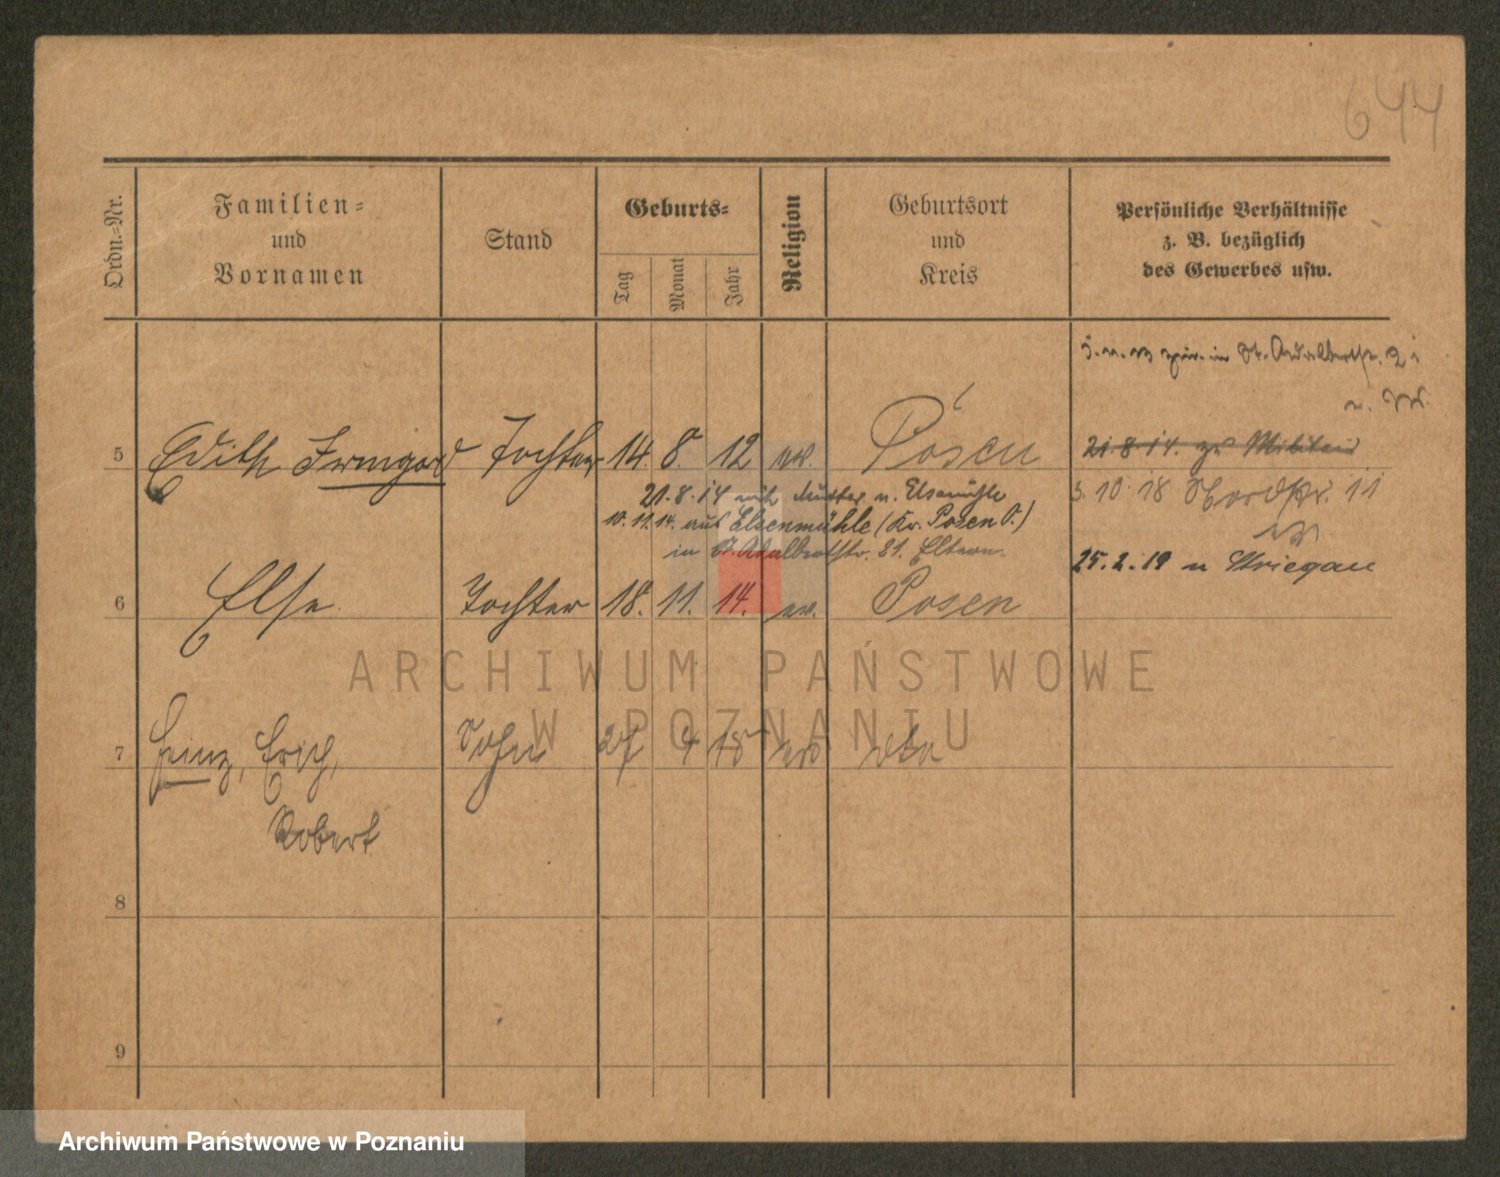 644
Ordn.-Nr.
Familien-
und
Vornamen
Stand
Geburts-
Tag
Monat
Jahr
Religion
Geburtsort
und
Kreis
Persönliche Verhältnisse
z. B. bezüglich
des Gewerbes usw.
in St. Adalbertstr.
5 Edith Irmgard Tochter 14. 8. 12 ev. Posen
21.8.14. zu Militär
21.8.14 mit Mutter n. Elsemühle
3.10.18 Nordstr. 11
10.11.14. aus Elsenmühle (Kr. Posen O.)
in St. Adalbertstr. 21. Eltern.
25.2.19 n Striegau
6 Else Tochter 18. 11. 14. ev. Posen
7 Heinz, Erich, Sohn 27 4 18 ev dto
Robert
8
9
ARCHIWUM PAŃSTWOWE
W POZNANIU
Archiwum Państwowe w Poznaniu